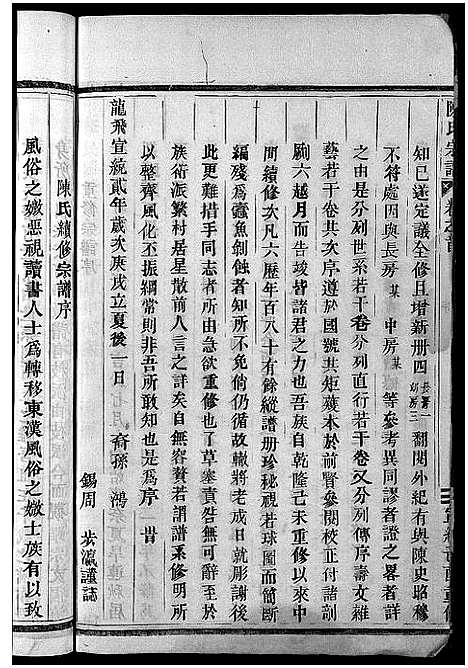 陳氏宗譜 卷之首
宣統庚戌重修
知已遂定議全修且增新册四長房一幼房三翻閱外紀有與陳史昭穆
不符處因與長房某中房某等參考異同謬者證之畧者詳
之由是分列世系若干卷分列直行若干卷又分列傳序壽文雜
藝若干卷其次序遵以國號其矩矱本於前賢參閱校正付諸剞
劂六越月而告竣皆諸君之力也吾族自乾隆己未重修以來中
間續修次凡六歷年百八十有餘縱譜册珍秘視若球圖而簡斷
編殘為蠹魚剝蝕者知所不免倘仍循故轍將老成日就彫謝後
此更難措手同志者所由急欲重修也了草塞責無可辭至於
族衍派繁村居星散前人言之詳矣自無容贅若謂譜系修明所
以整齊風化丕振綱常則非吾所敢知也是為序 昔
龍飛宣統貳年歲次庚戌立夏後一日 裔孫 鴻
錫周 步瀛謹誌
陳氏續修宗譜序
風俗之媺惡視讀書人士為轉移東漢風俗之媺士族有以致